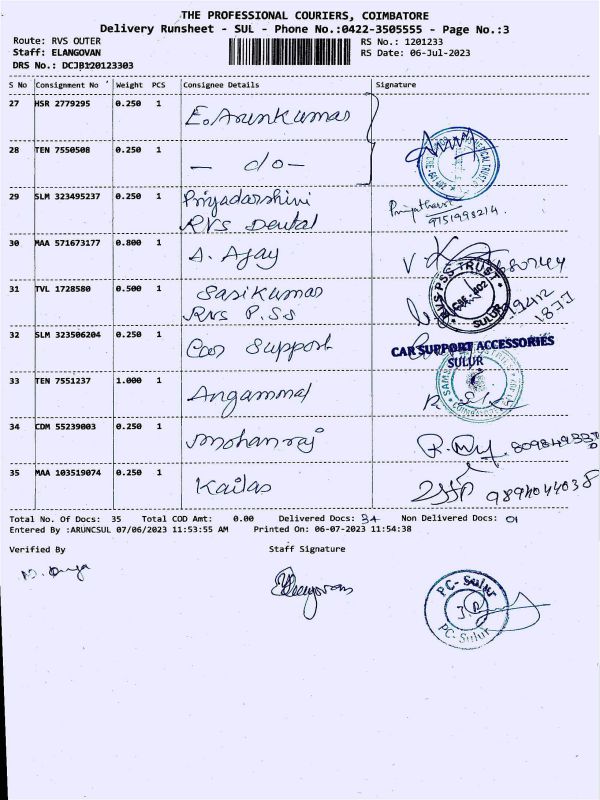 THE PROFESSIONAL COURIERS, COIMBATORE
Delivery Runsheet - SUL - Phone No.:0422-3505555 - Page No.:3
Route: RVS OUTER RS No.: 1201233
Staff: ELANGOVAN RS Date: 06-Jul-2023
DRS No.: DCJB120123303
S No Consignment No Weight PCS Consignee Details Signature
27 HSR 2779295 0.250 1 E. Arunkumar
28 TEN 7550508 0.250 1 — do —
29 SLM 323495237 0.250 1 Priyadarshini
RVS Dental
9751998214.
30 MAA 571673177 0.800 1 A. Ajay
31 TVL 1728580 0.500 1 Sasikumar
RVS P.SS
RVS PSS TRUST
CBE-402
SULUR
32 SLM 323506204 0.250 1 Car Support
CAR SUPPORT ACCESSORIES
SULUR
33 TEN 7551237 1.000 1 Angammal
34 CDM 55239003 0.250 1 mohanraj
35 MAA 103519074 0.250 1 Kailas
Total No. Of Docs: 35 Total COD Amt: 0.00 Delivered Docs: 34 Non Delivered Docs: 01
Entered By :ARUNCSUL 07/06/2023 11:53:55 AM Printed On: 06-07-2023 11:54:38
Verified By Staff Signature
PC- Sulur
PC- Sulur